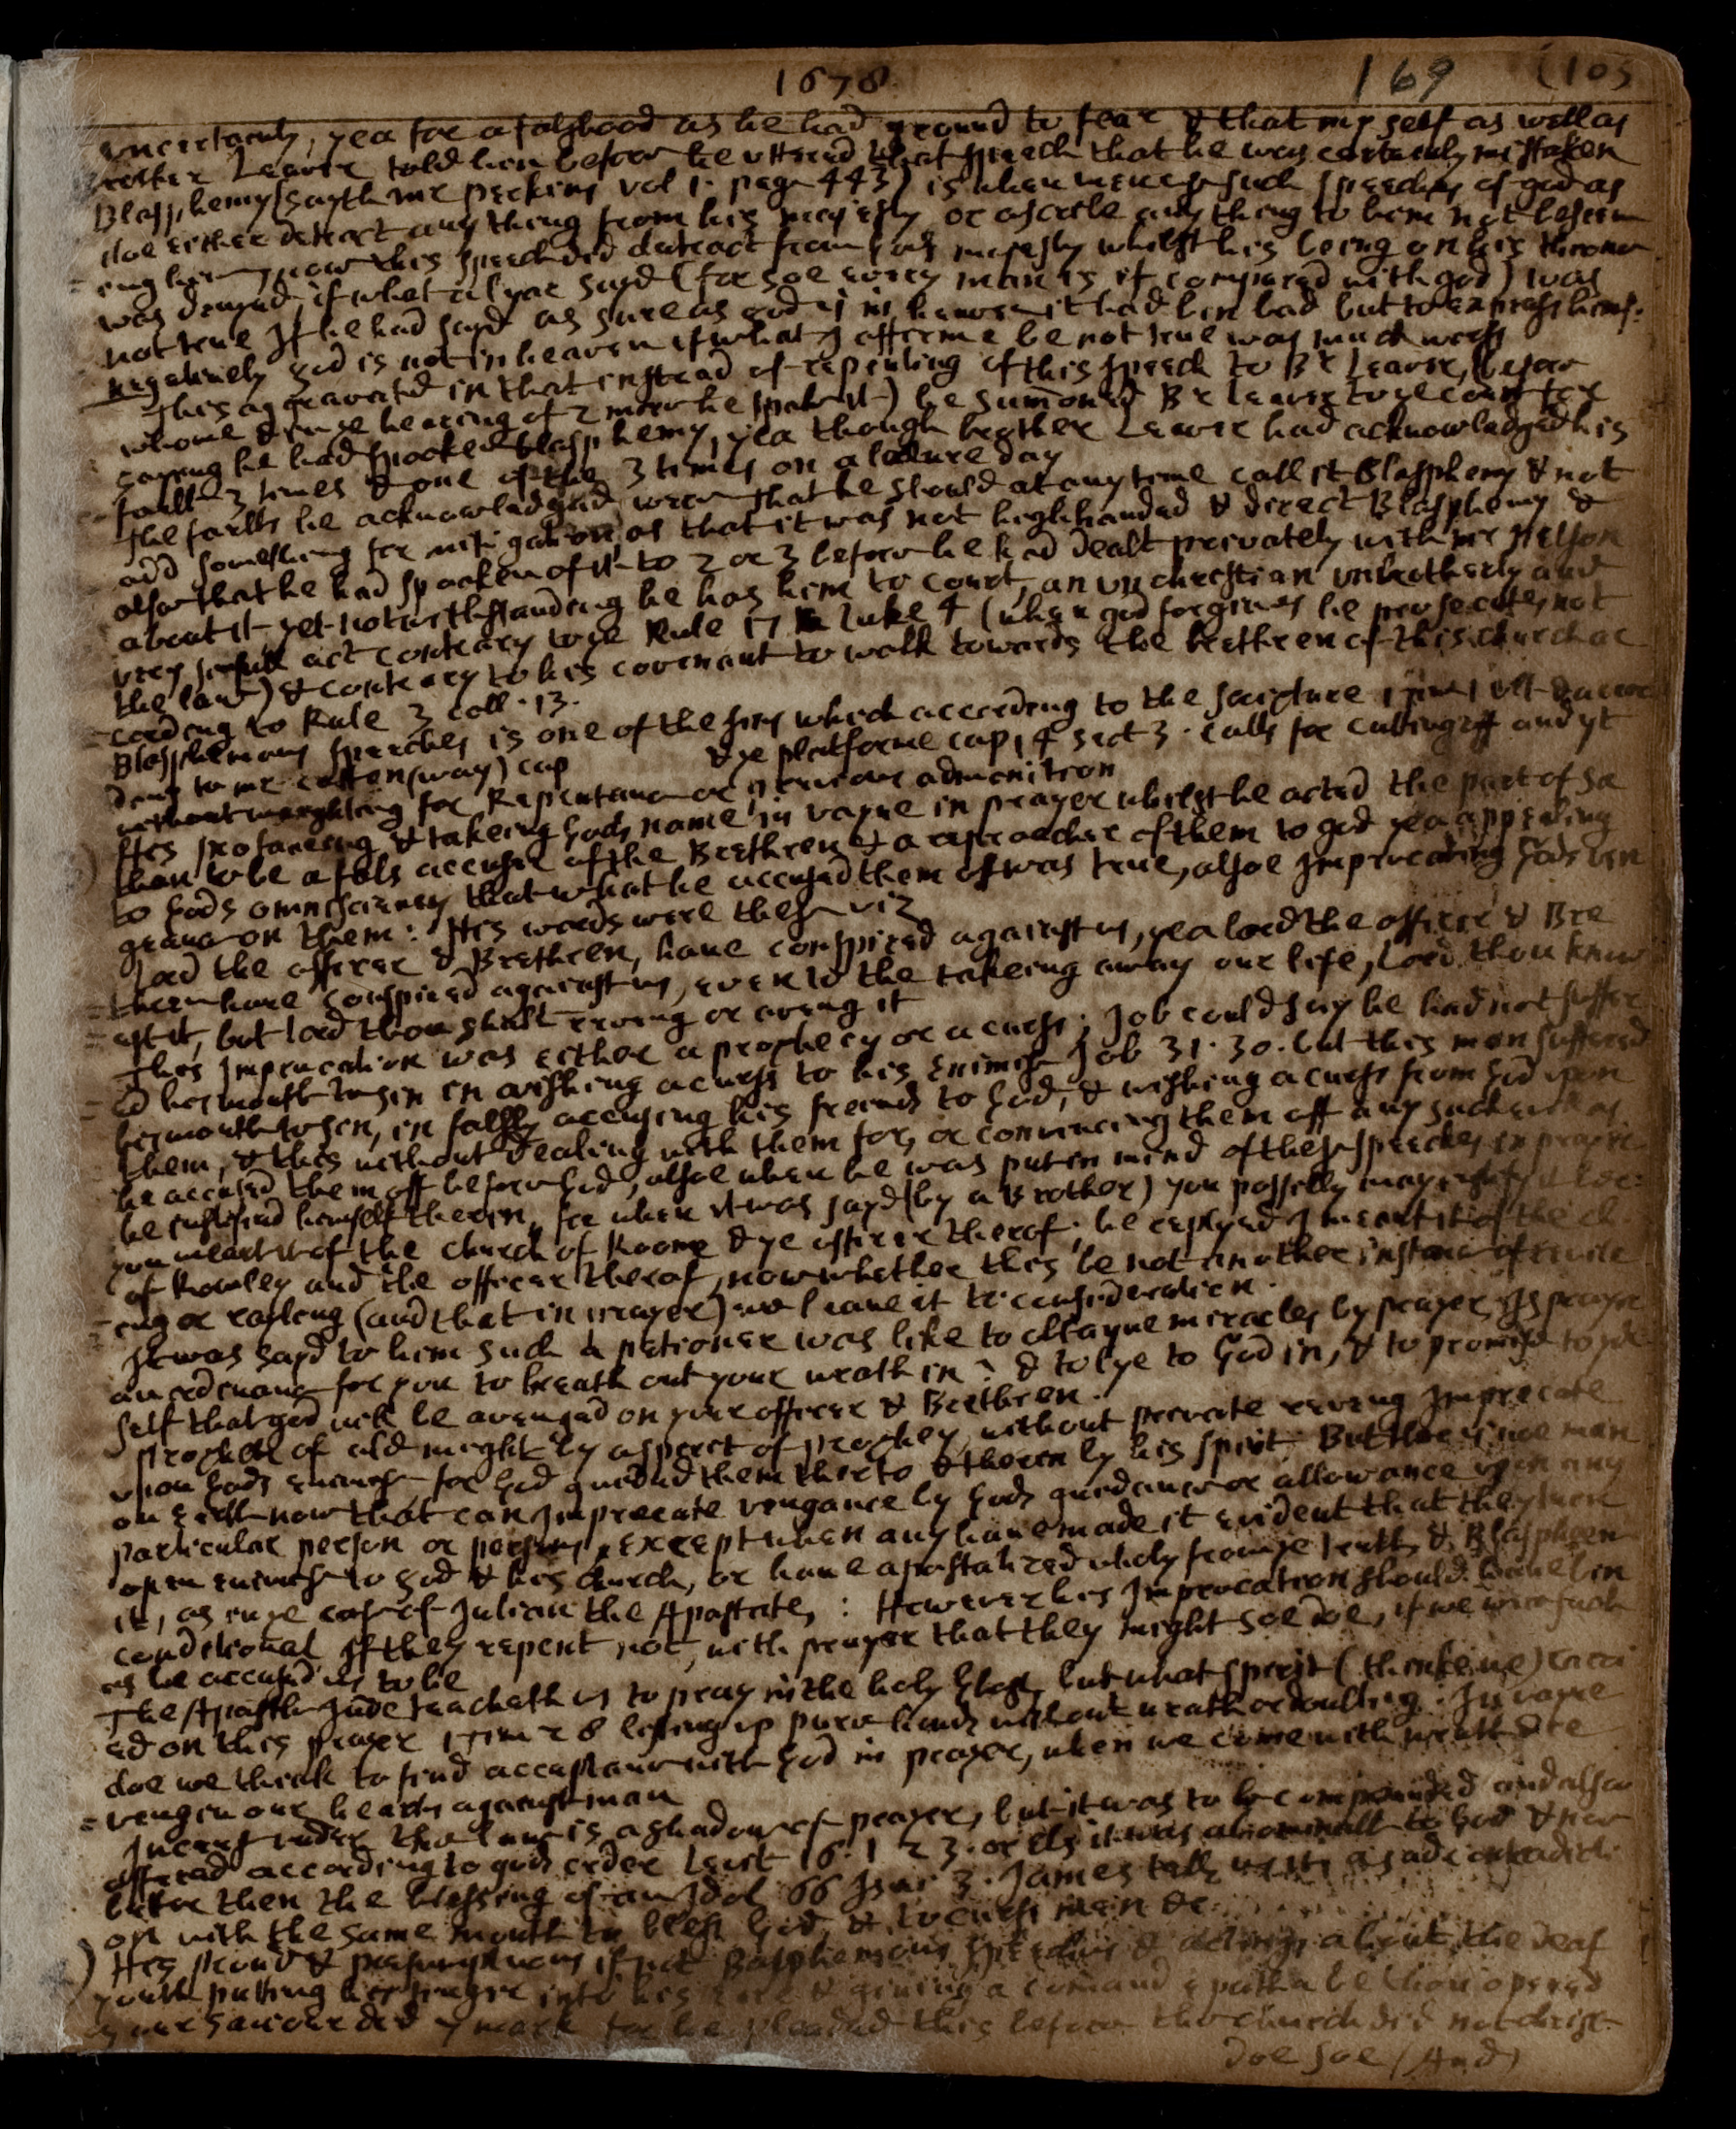 1678 169 (105
uncertainty, yea for a falshood as he had ground to fear & that my self as well as
brother Leaver told him before he uttered that speech that he was certainly mistaken
Blasphemy (sayth mr perkins vol 1. page 443) is when men use such speeches of god as
doe either detract any thing from his majesty or ascribe any thing to him not beseem
=ing him, now this speech did detract from gods majesty whilst his being on his throne
was denyed, if what a lyar sayd (for soe every man is if compared with god) was
not true If he had sayd as sure as god is in heaven it had bin bad but to express himse:
negatively god is not in heaven if what I affirme be not true was much wors
This aggravated in that instead of repenting of this speech to Br Leaver, (before
whome & in ye hearing of 2 more he spake it) he sumoned Br leaver to ye court for
saying he had spooken blasphemy, yea though brother Leaver had acknowledged his
fault 3 times & one of the 3 times on a lecture day
The faults he acknowledged were that he should at any time call it Blasphemy & not
add something for mitigation, as that it was not highhanded & direct Blasphemy &
alsoe that he had spoaken of it to 2 or 3 before he had dealt privately with mr Nelson
about it yet notwithstanding he has him to court, an unchristian unbrotherly and
very sinfull act contrary to ye Rule 17 luke 4 (when god forgives he prosecutes not
the law) & contrary to his covenant to walk towards the brethren of this church ac
=cording to Rule 3 coll. 13.
Blasphemous speeches is one of the sins which according to the scripture 1 tim 1 ult & accor
ding to mr cotten (way) cap & ye platforme cap 14 sect 3. calls for cutting off and yt
without waighting for Repentance or previous admonition
) His profaneing & takeing gods name in vayne in prayer whilst he acted the part of Sa
than to be a fals accuser of the Brethren & a reproacher of them to god yea appealing
to gods omnisciency that what he accused them off was true, alsoe Imprecating gods ven
geance on them: His words were these viz
Lord the officer & Brethren, have conspired against us, yea lord the officer & Bre
=thern have conspired against us, even to the takeing away our life, Lord thou know
=est it, but lord thou shalt reveng or aveng it
This Imprecation was either a prophecy or a curss; Job could say he had not suffer
=ed his mouth to sin in wishing a curss to his Enimise Job 31. 30. but this man suffered
his mouth to sin, in falsly accusing his freinds to god, & wishing a curss from god upon
them, & this without dealing with them for, or convincing them off any such evill as
he accused them off before god, alsoe when he was put in mind of these speeches in prayer
he justifyed himself therein, for when it was sayd (by a Brother) you possibly may
you meant it of the church of Roome & ye officer therof, he replyed I meant it of the ch
of Rowley and the officer therof, now whether this be not another instance of revile
=ing or rayleng (and that in prayer) we leave it to consideration.
It was sayd to him such a petioner was like to attayne miracles by prayer, Is prayer
an ordenance for you to breath out your wrath in? & to lye to God in, & to promise to your
self that god will be avenged on your officer & Brethren.
Prophets of old might by a spirit of prophey, without private reveng Imprecate
upon gods enimise for god guided them therto & therin by his spirit But ther is noe man
on earth now that can Imprecate vengance by gods guidance or allowance upon any
particular person or persons, Except when any have made it evident that they were
open enimise to god & his church, or have apostatized wholy from ye truth & Blasphem
it, as in ye case of Julian the Apostate,: However his Imprecation should have bin
conditional if they repent not, with prayer that they might soe doe, if we were such
as he accused us to be
The Apostle Jude teacheth us to pray in the holy Ghost, but what spirit (thinke we) carri
ed on this prayer 1 tim 2 8 lifting up pure hands without wrath or doubting. In vayne
doe we think to find acceptance with god in prayer, when we come with wrath & re
=venge in our hearts against man
Incense under the law is a shadow of prayer, but it was to be compounded and alsoe
offered according to gods order Levit 16. 1 2 3. or els it was abominable to God & noe
better then the blessing of an Idol 66 Isai 3. James tells us its a sade contradicti
on with the same mouth to bless God & to curss man &c.
) His proud & presumptuous if not Blasphemous speeches & actings about the deaf
youth putting his fingre into his eare & giveing a comand Epphatha be thou opened
as our saviour did 7 mark for he pleaded this before the church did not christ
doe soe (And)